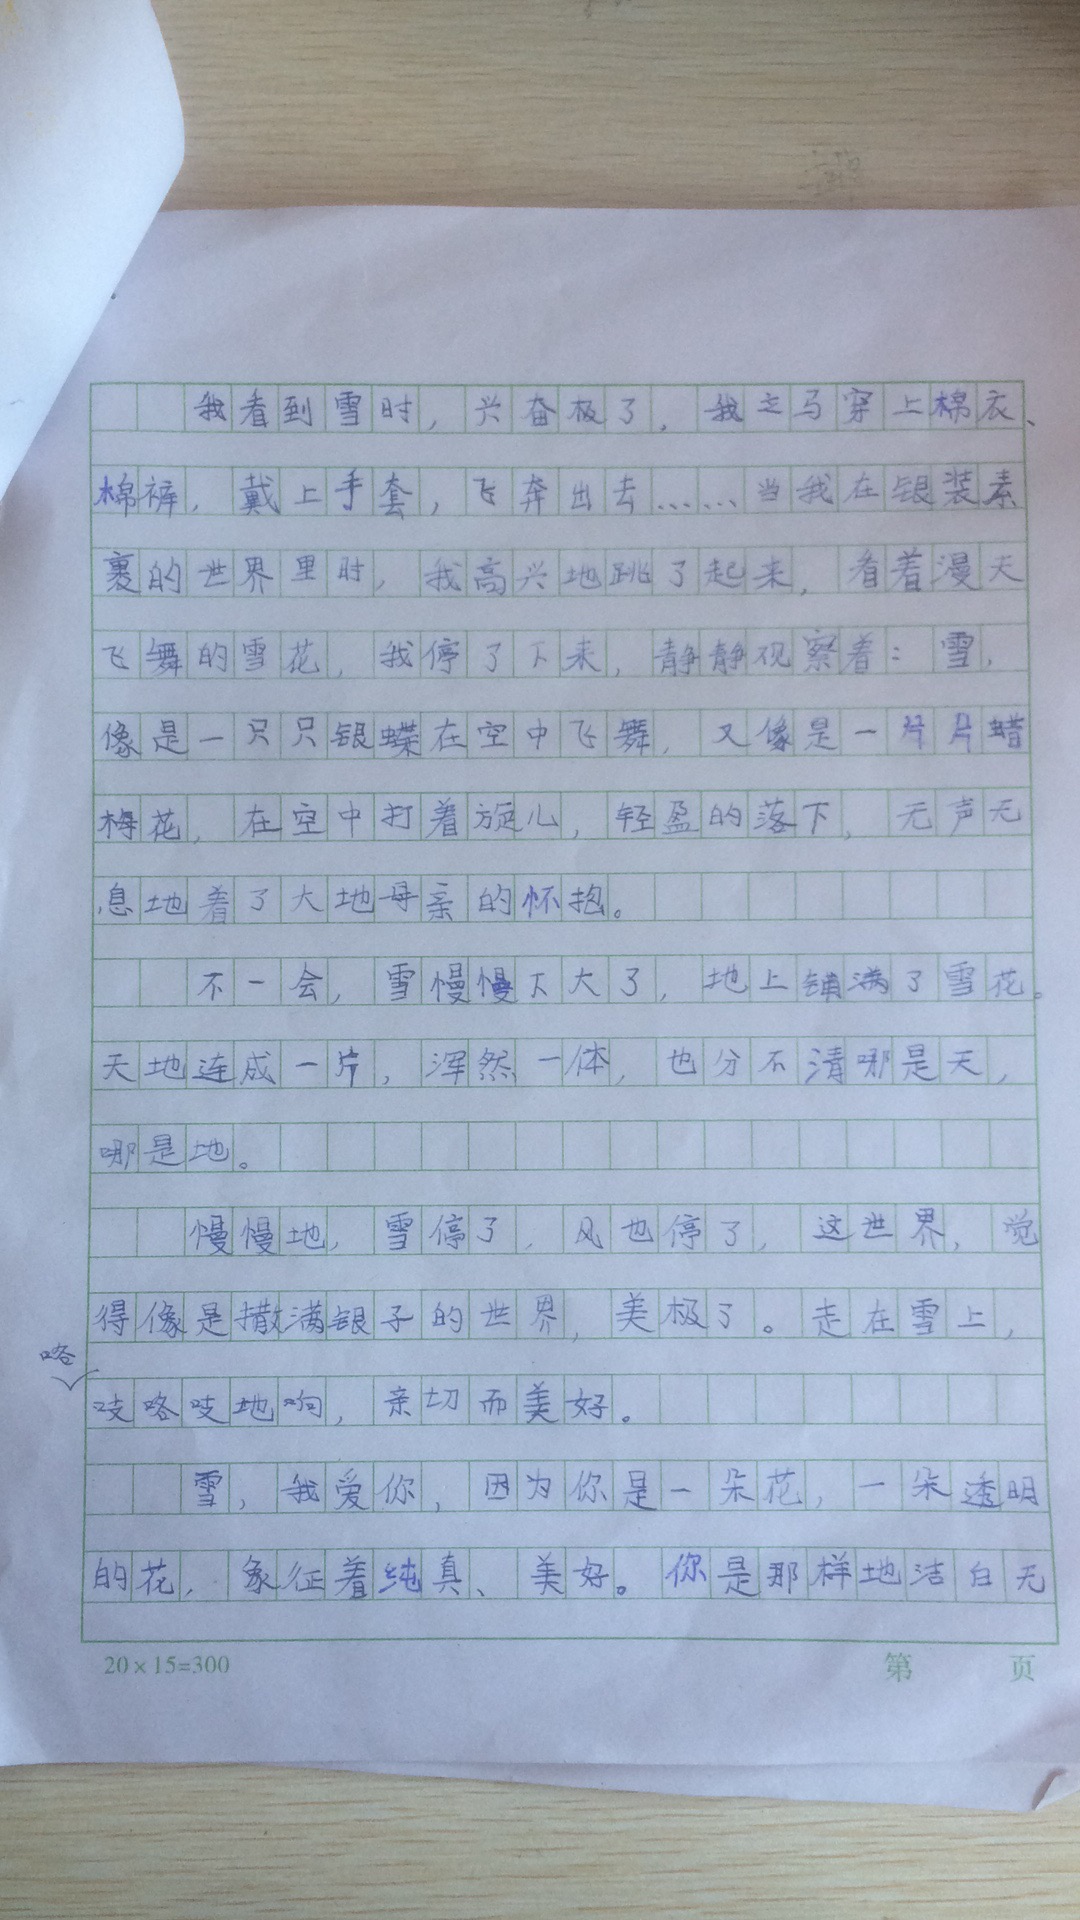 我看到雪时，兴奋极了，我立马穿上棉衣、
棉裤，戴上手套，飞奔出去……当我在银装素
裹的世界里时，我高兴地跳了起来，看着漫天
飞舞的雪花，我停了下来，静静观察着：雪，
像是一只只银蝶在空中飞舞，又像是一片片蜡
梅花，在空中打着旋儿，轻盈的落下，无声无
息地着了大地母亲的怀抱。
不一会，雪慢慢下大了，地上铺满了雪花。
天地连成一片，浑然一体，也分不清哪是天，
哪是地。
慢慢地，雪停了，风也停了，这世界，觉
得像是撒满银子的世界，美极了。走在雪上，
咯
吱咯吱地响，亲切而美好。
雪，我爱你，因为你是一朵花，一朵透明
的花，象征着纯真、美好。你是那样地洁白无
20×15=300 第 页